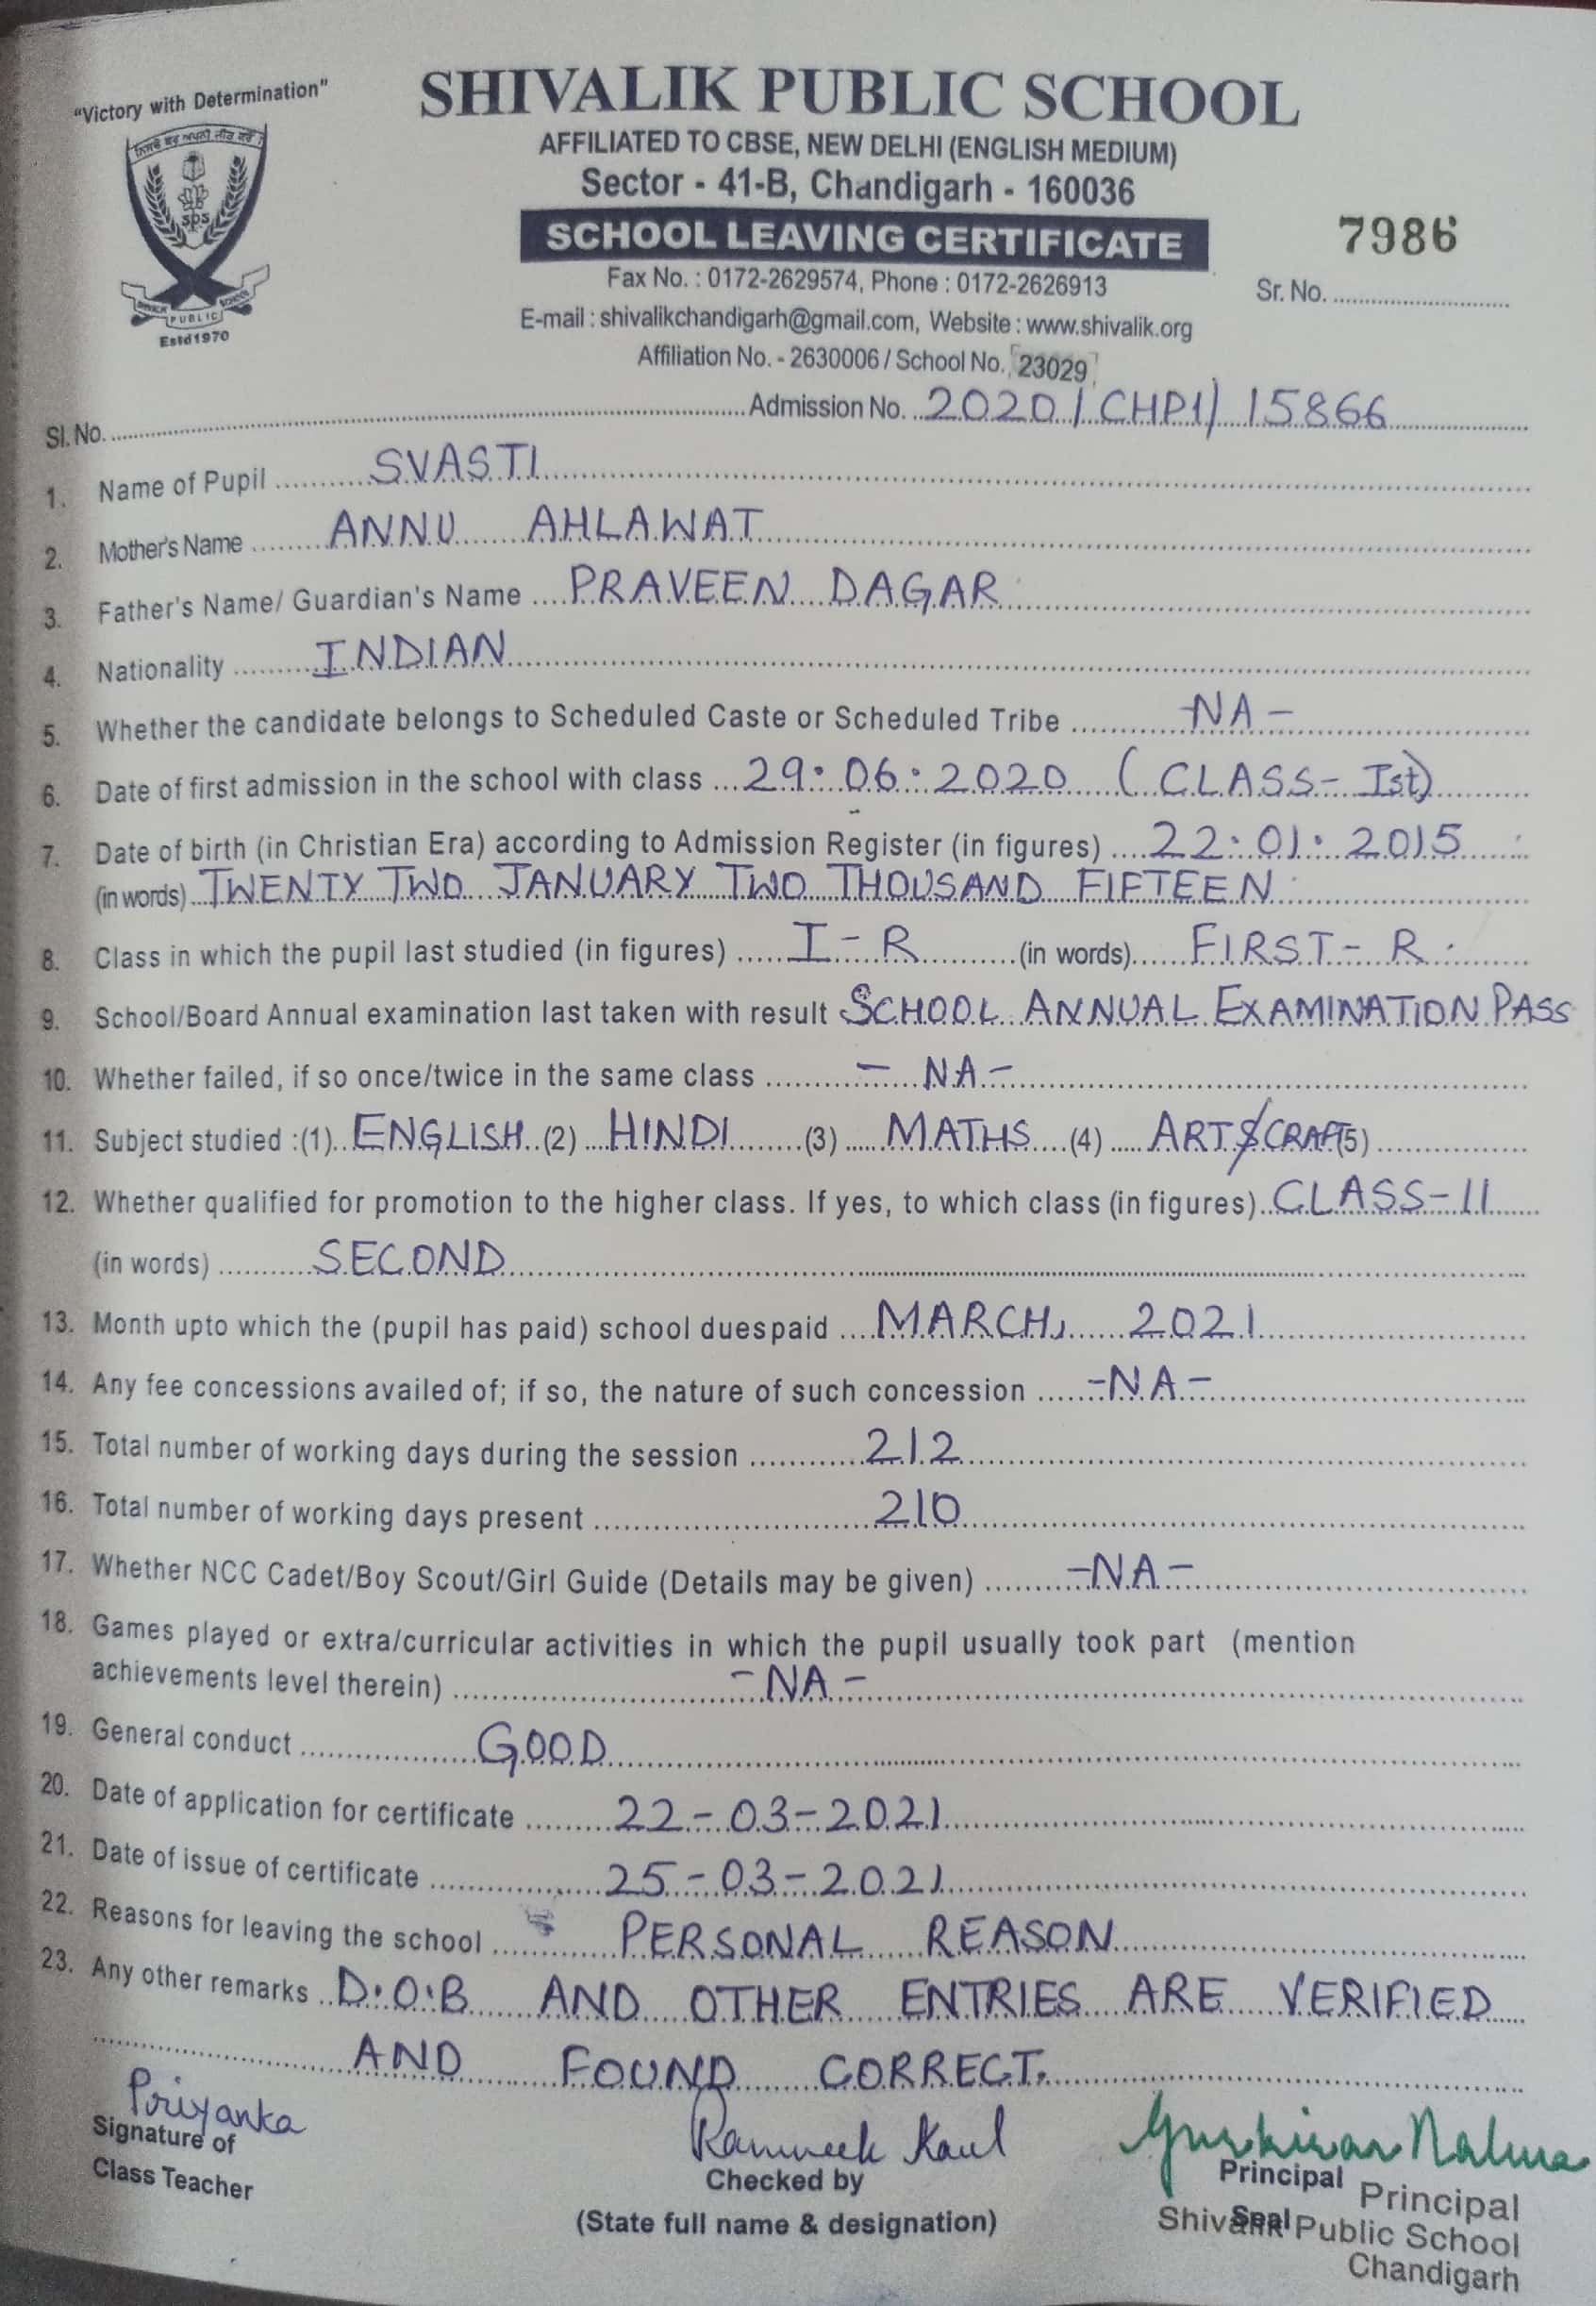 "Victory with Determination"
SHIVALIK PUBLIC SCHOOL
AFFILIATED TO CBSE, NEW DELHI (ENGLISH MEDIUM)
Sector - 41-B, Chandigarh - 160036
SCHOOL LEAVING CERTIFICATE
7986
SPS
SHIVALIK PUBLIC SCHOOL
Estd1970
Fax No. : 0172-2629574, Phone : 0172-2626913
Sr. No. ..........
E-mail : shivalikchandigarh@gmail.com, Website : www.shivalik.org
Affiliation No. - 2630006 / School No. 23029
Sl. No. .......... Admission No. 2020/CHP1/15866
1. Name of Pupil SVASTI
2. Mother's Name ANNU AHLAWAT
3. Father's Name/ Guardian's Name PRAVEEN DAGAR
4. Nationality INDIAN
5. Whether the candidate belongs to Scheduled Caste or Scheduled Tribe -NA-
6. Date of first admission in the school with class 29.06.2020 (CLASS-Ist)
7. Date of birth (in Christian Era) according to Admission Register (in figures) 22.01.2015
(in words) TWENTY TWO JANUARY TWO THOUSAND FIFTEEN
8. Class in which the pupil last studied (in figures) I-R (in words) FIRST-R
9. School/Board Annual examination last taken with result SCHOOL ANNUAL EXAMINATION PASS
10. Whether failed, if so once/twice in the same class -NA-
11. Subject studied :(1) ENGLISH (2) HINDI (3) MATHS (4) ART$CRAFT (5)
12. Whether qualified for promotion to the higher class. If yes, to which class (in figures) CLASS-II
(in words) SECOND
13. Month upto which the (pupil has paid) school duespaid MARCH, 2021
14. Any fee concessions availed of; if so, the nature of such concession -NA-
15. Total number of working days during the session 212
16. Total number of working days present 210
17. Whether NCC Cadet/Boy Scout/Girl Guide (Details may be given) -NA-
18. Games played or extra/curricular activities in which the pupil usually took part (mention
achievements level therein) -NA-
19. General conduct GOOD
20. Date of application for certificate 22-03-2021
21. Date of issue of certificate 25-03-2021
22. Reasons for leaving the school PERSONAL REASON
23. Any other remarks D.O.B AND OTHER ENTRIES ARE VERIFIED
AND FOUND CORRECT.
Priyanka
Signature of
Class Teacher
Ramneek Kaul
Checked by
(State full name & designation)
Gurkiran Nalwa
Principal
Seal
Principal
Shivalik Public School
Chandigarh